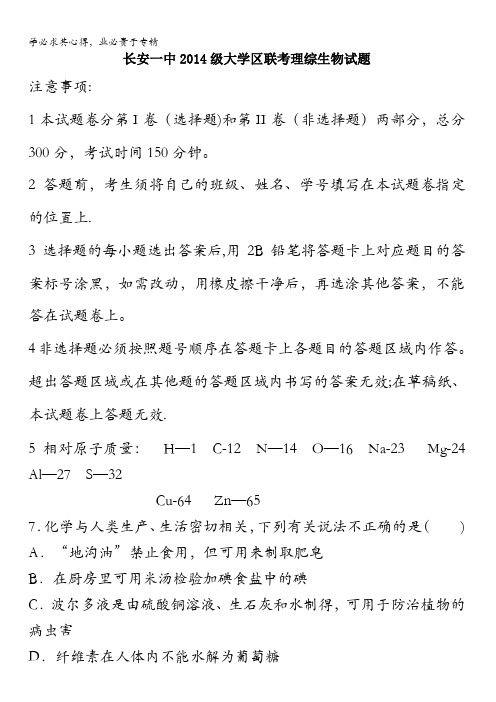 学必求其心得，业必贵于专精
长安一中2014级大学区联考理综生物试题
注意事项:
1本试题卷分第I卷（选择题)和第II卷（非选择题）两部分，总分
300分，考试时间150分钟。
2 答题前，考生须将自己的班级、姓名、学号填写在本试题卷指定
的位置上.
3 选择题的每小题选出答案后,用2B铅笔将答题卡上对应题目的答
案标号涂黑，如需改动，用橡皮擦干净后，再选涂其他答案，不能
答在试题卷上。
4非选择题必须按照题号顺序在答题卡上各题目的答题区域内作答。
超出答题区域或在其他题的答题区域内书写的答案无效;在草稿纸、
本试题卷上答题无效.
5 相对原子质量： H—1 C-12 N—14 O—16 Na-23 Mg-24
Al—27 S—32
Cu-64 Zn—65
7.化学与人类生产、生活密切相关,下列有关说法不正确的是( )
A．“地沟油”禁止食用，但可用来制取肥皂
B．在厨房里可用米汤检验加碘食盐中的碘
C．波尔多液是由硫酸铜溶液、生石灰和水制得，可用于防治植物的
病虫害
D．纤维素在人体内不能水解为葡萄糖